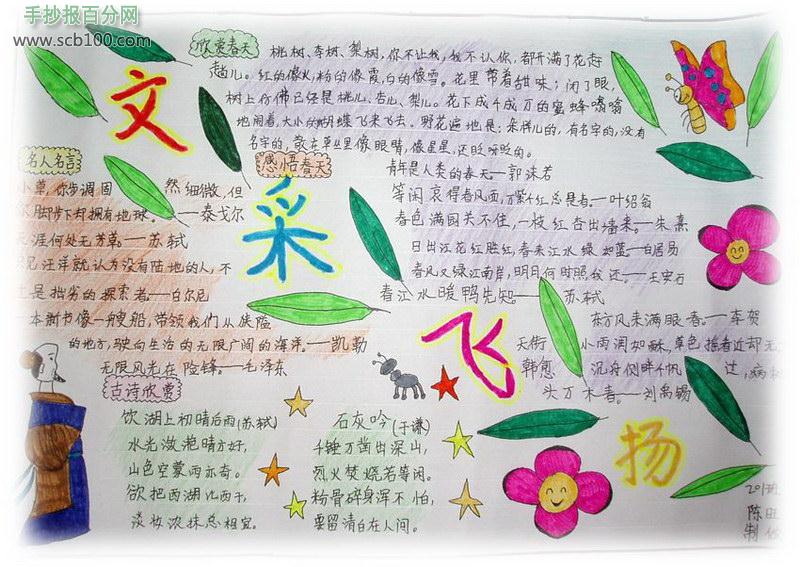 手抄报百分网
www.scb100.com
文
采
飞
扬
欣赏春天
桃树、李树、梨树,你不让我,我不认你,都开满了花赶
趟儿。红的像火,粉的像霞,白的像雪。花里带着甜味;闭了眼,
树上仿佛已经是桃儿、杏儿、梨儿。花下成千成万的蜜蜂嗡嗡
地闹着,大小的蝴蝶飞来飞去。野花遍地是:杂样儿的,有名字的,没有
名字的,散在草丛里像眼睛,像星星,还眨呀眨的。
名人名言
小草,你步调固然细微,但
脚步下却拥有地球。——泰戈尔
天涯何处无芳草。——苏轼
汪洋就认为没有陆地的人,不
是拙劣的探索者——白尔尼
一本新书像一艘船,带领我们从狭隘
的地方,驶向生活的无限广阔的海洋。——凯勒
无限风光在险锋。——毛泽东
感悟春天
青年是人类的春天——郭沫若
等闲哀得春风面,万紫千红总是春——叶绍翁
春色满园关不住,一枝红杏出墙来。——朱熹
日出江花红胜红,春来江水绿如蓝。——白居易
春风又绿江南岸,明月何时照我还。——王安石
春江水暖鸭先知——苏轼
东方风来满眼春。——李贺
天街小雨润如酥,草色摇看近却无
韩愈 沉舟侧畔千帆过,病树
头万木春。——刘禹锡
古诗欣赏
饮湖上初晴后雨(苏轼)
水光潋滟晴方好,
山色空蒙雨亦奇。
欲把西湖比西子,
淡妆浓抹总相宜。
石灰吟(于谦)
千锤万凿出深山,
烈火焚烧若等闲。
粉骨碎身浑不怕,
要留清白在人间。
201班
陈旺
制作